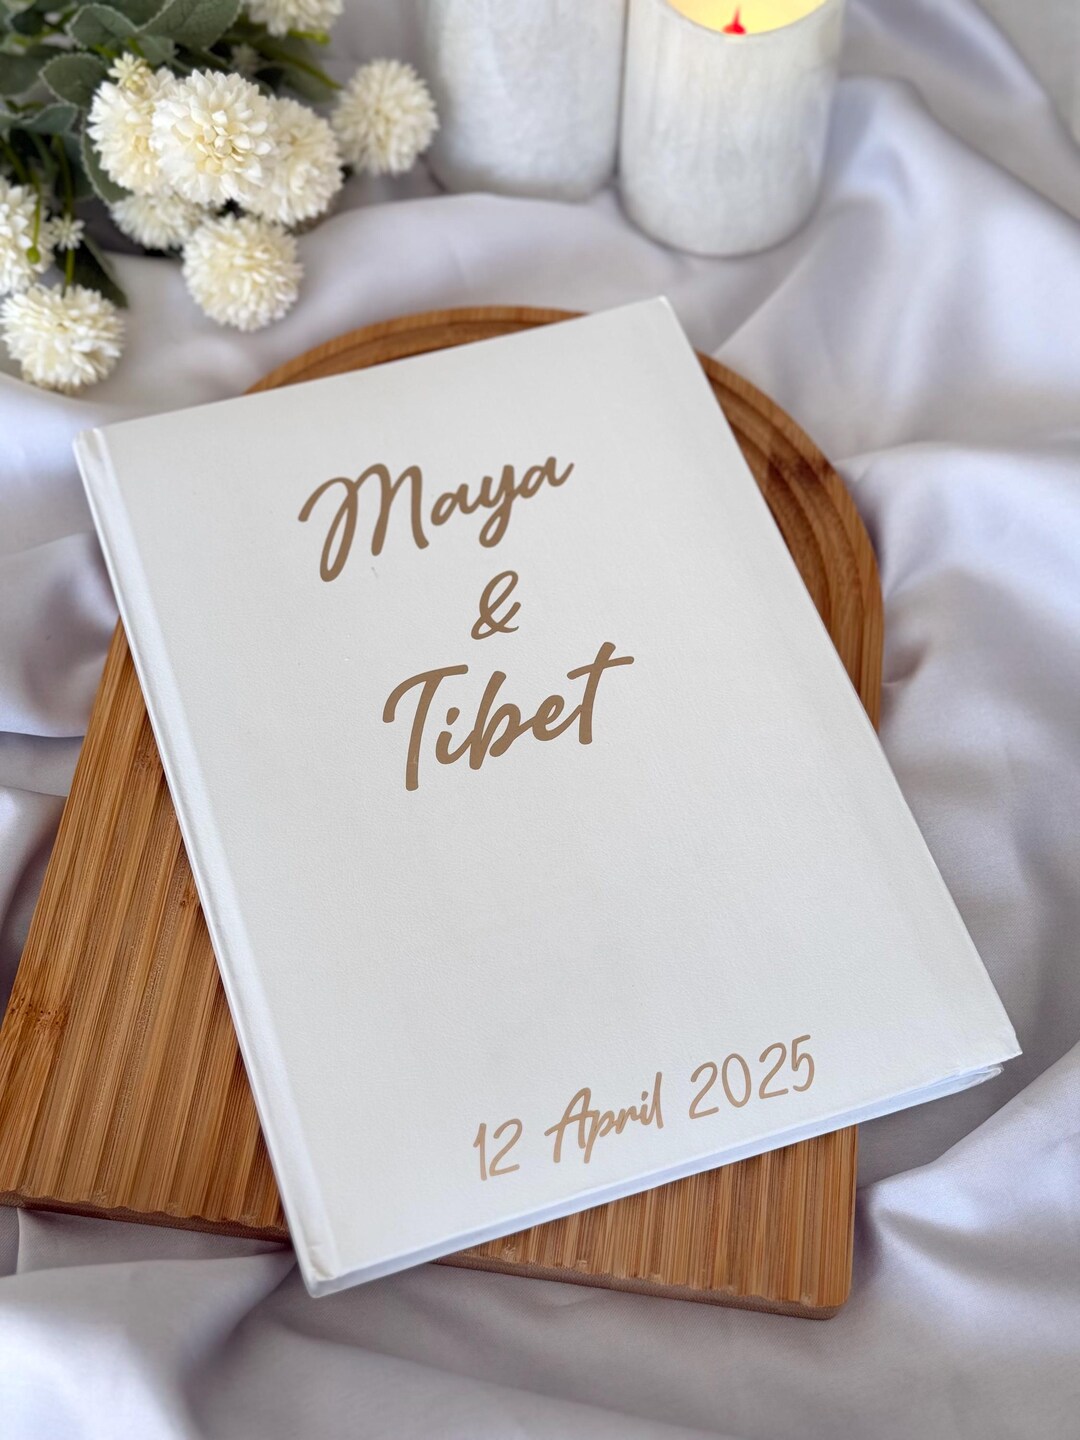 Maya
&
Tibet
12 April 2025